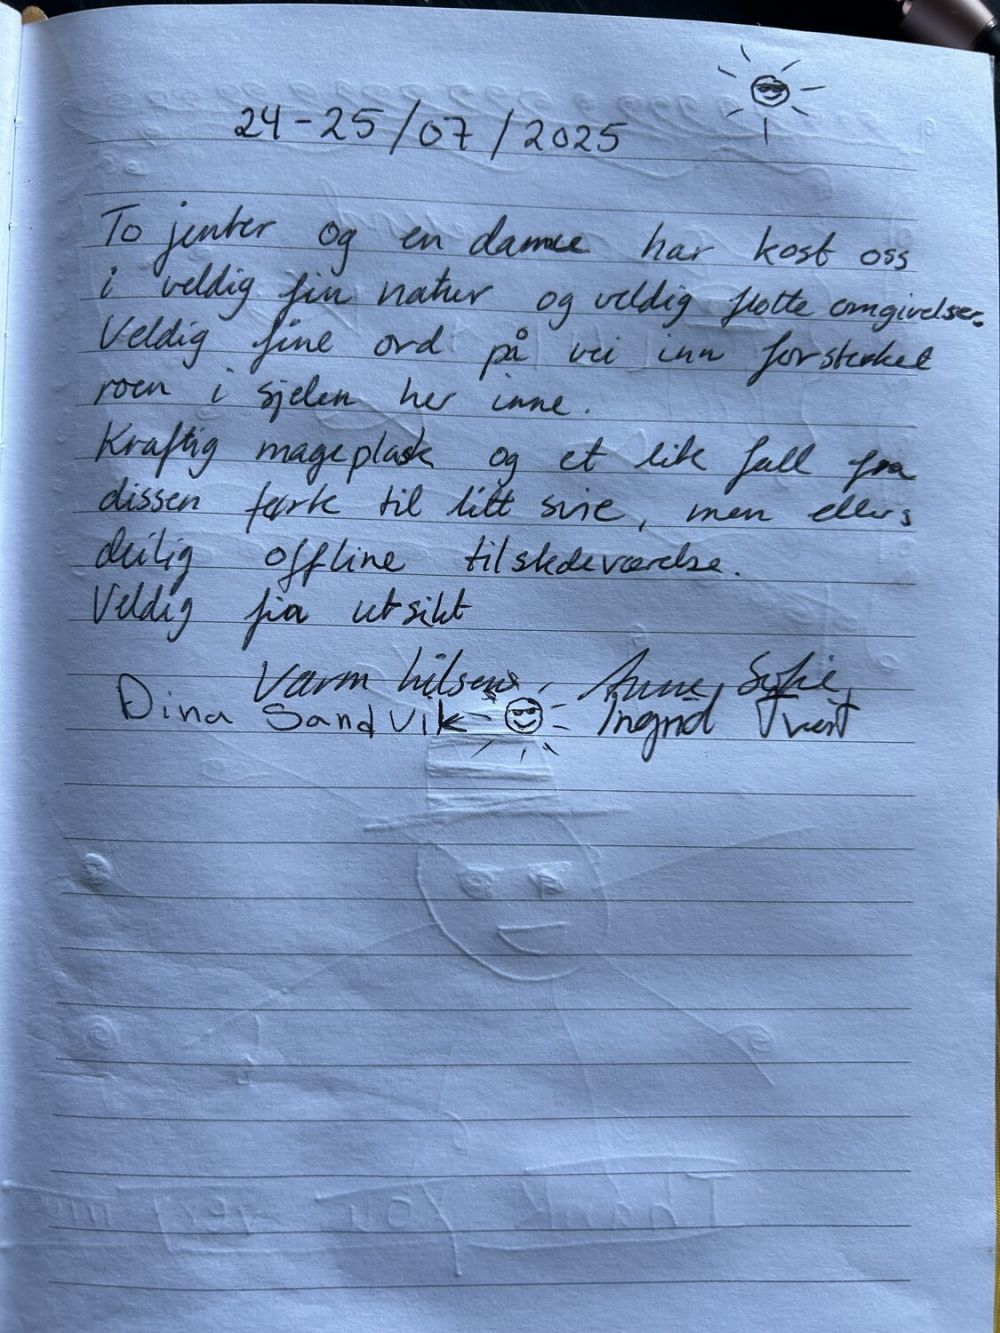 24-25/07/2025
To jenter og en damee har kost oss
i veldig fin natur og veldig flotte omgivelser.
Veldig fine ord på vei inn forsterket
roen i sjelen her inne.
Kraftig mageplask og et lite fall fra
dissen førte til litt svie, men ellers
deilig offline tilstedeværelse.
Veldig fin utsikt
Varm hilsen, Anne, Sofie,
Dina Sandvik Ingrid Tveit
Thank you very